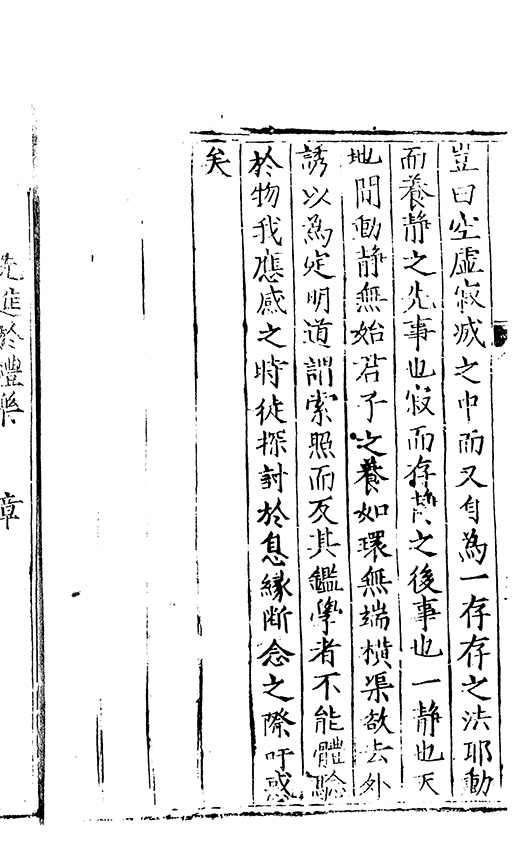 豈曰空虛寂滅之中而又自為一存存之法耶動
而養靜之先事也寂而存誠之後事也一靜也天
地間動靜無始君子之養如環無端橫渠欲去外
誘以為定明道謂索照而反其鑑學者不能體驗
於物我應感之時徒探討於息緣斷念之際吁惑
矣
先進於禮樂 章